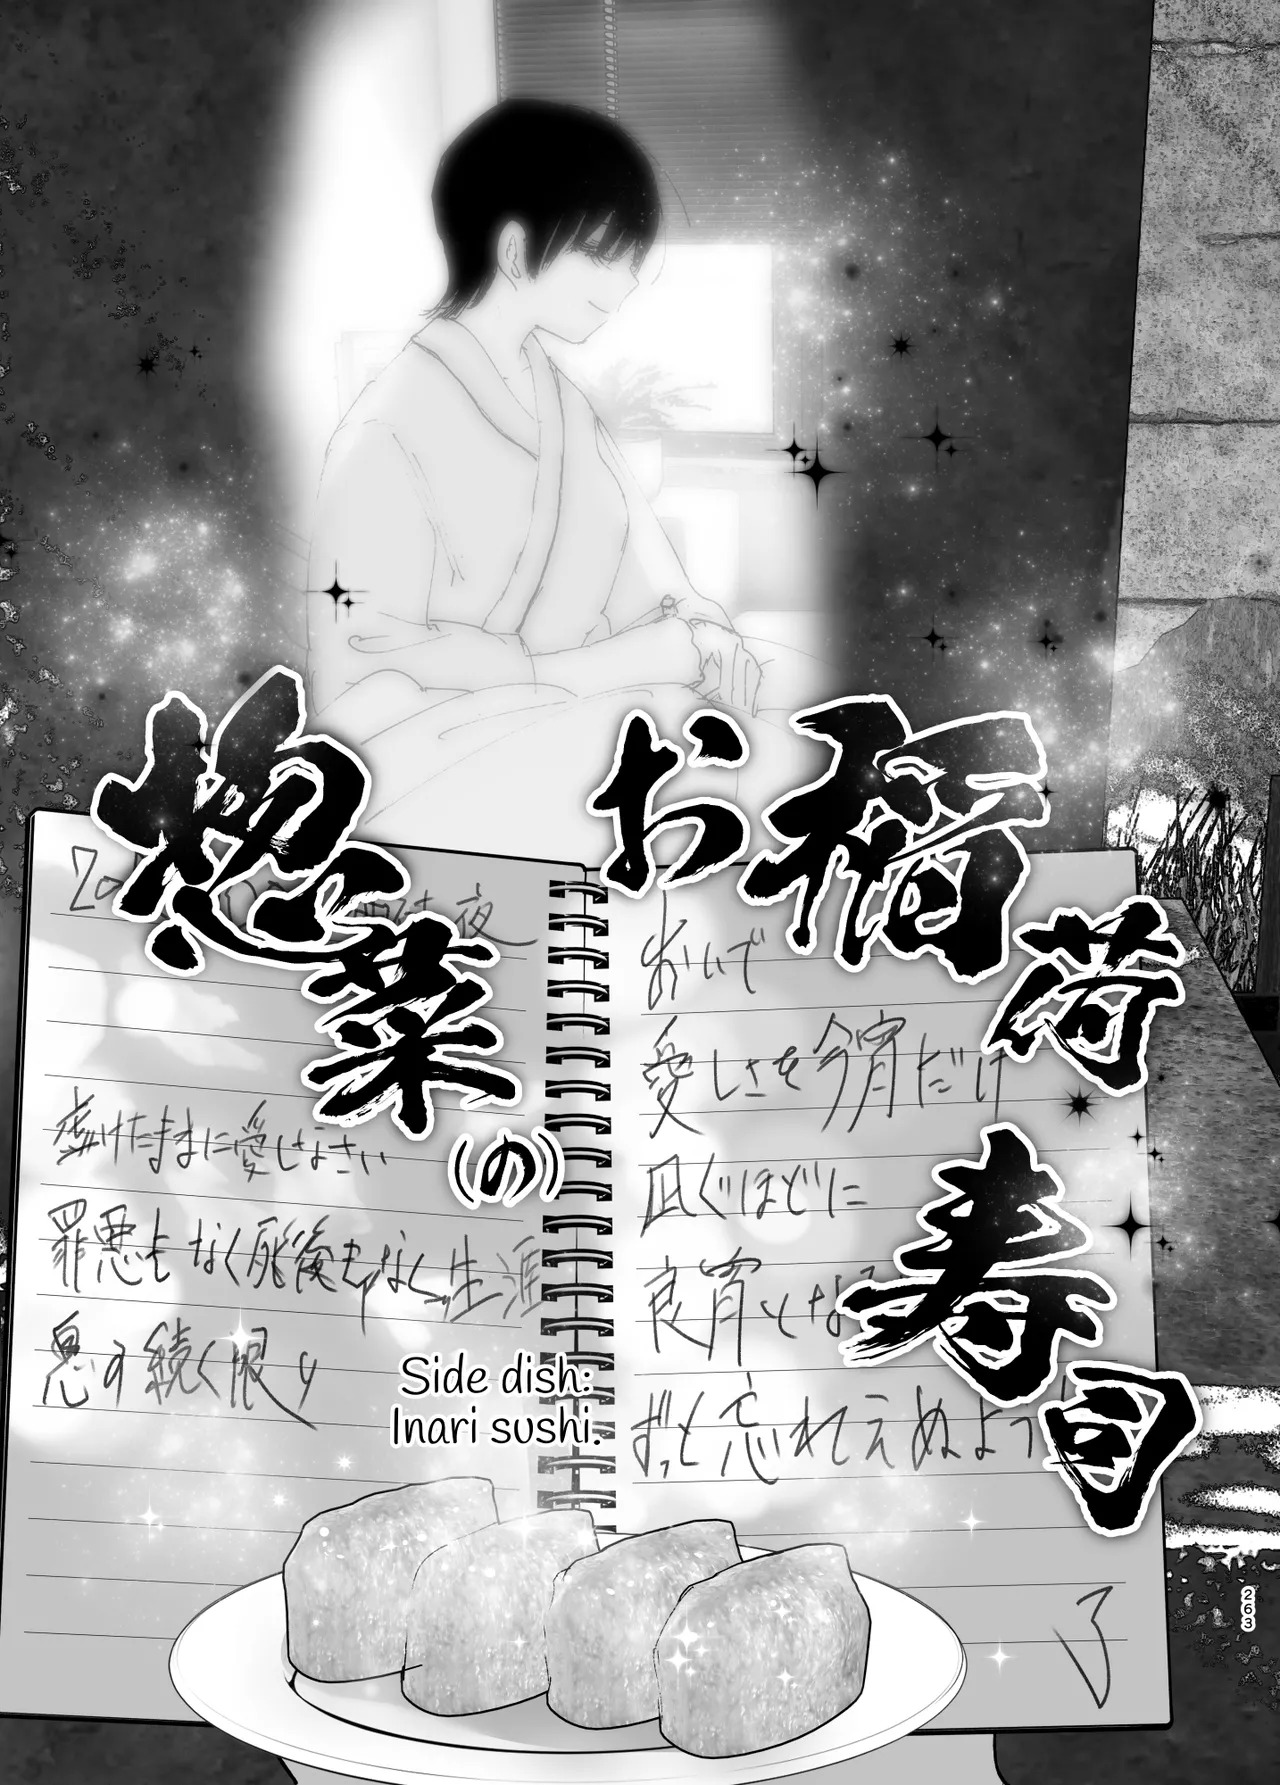 惣菜(の)
お稲荷寿司
夜
虚けたままに愛しなさい
罪悪もなく死後もなく生涯
息の続く限り
おいで
愛しさを今宵だけ
凪ぐほどに
良宵とな
ずっと忘れえぬよう
了
Side dish:
Inari sushi.
263